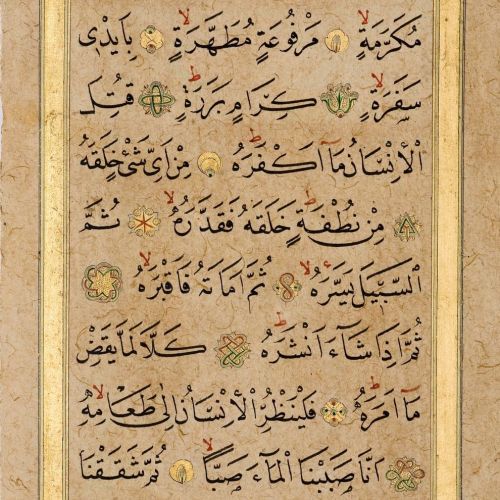 مُكَرَّمَةٍ ۙ مَرْفُوعَةٍ مُطَهَّرَةٍ ۙ بِاَيْدٖى
سَفَرَةٍ ۙ كِرَامٍ بَرَرَةٍ ؕ قُتِلَ
الْاِنْسَانُ مَٓا اَكْفَرَهُ ؕ مِنْ اَىِّ شَىْءٍ خَلَقَهُ
مِنْ نُطْفَةٍ ؕ خَلَقَهُ فَقَدَّرَهُ ۙ ثُمَّ
السَّبٖيلَ يَسَّرَهُ ۙ ثُمَّ اَمَاتَهُ فَاَقْبَرَهُ ۙ
ثُمَّ اِذَا شَٓاءَ اَنْشَرَهُ ؕ كَلَّا لَمَّا يَقْضِ
مَٓا اَمَرَهُ ؕ فَلْيَنْظُرِ الْاِنْسَانُ اِلٰى طَعَامِهٖ ۙ
اَنَّا صَبَبْنَا الْمَٓاءَ صَبًّا ۙ ثُمَّ شَقَقْنَا